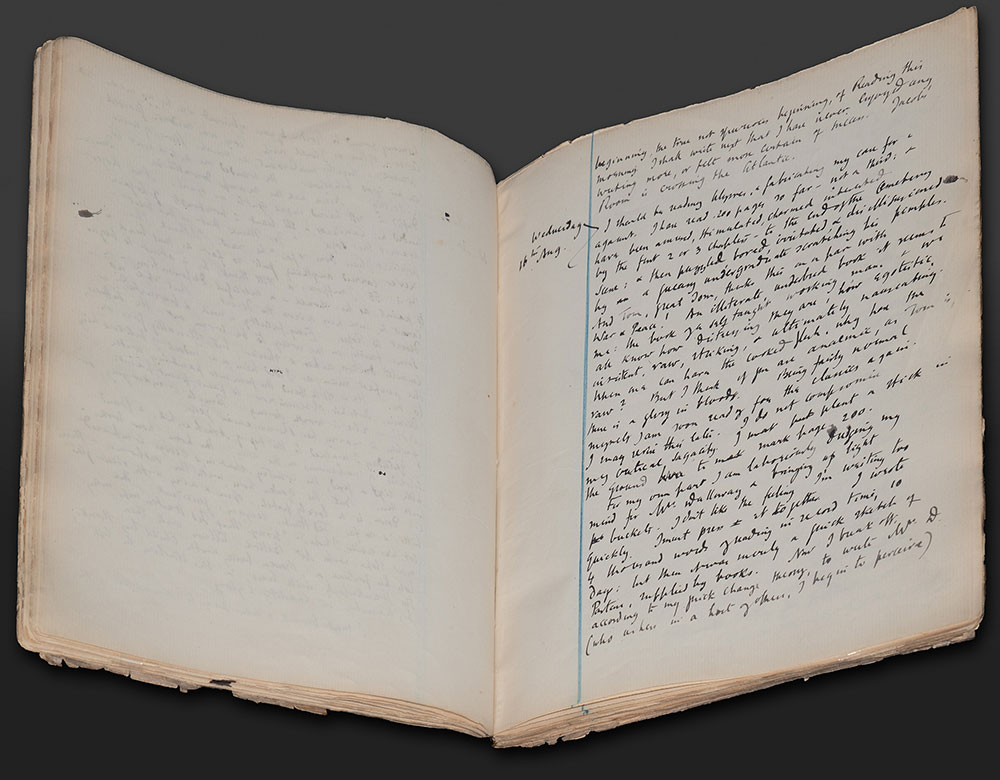 beginning, the true not spurious beginning, of Reading this
morning. I shall write next that I have never enjoyed any
writing more, or felt more certain of success. Jacobs'
Room is crossing the Atlantic.
Wednesday
16th Aug.
I should be reading Ulysses, & fabricating my case for &
against. I have read 200 pages so far - not a third; &
have been amused, stimulated, charmed interested
by the first 2 or 3 chapters - to the end of the Cemetery
scene; & then puzzled, bored, irritated, & disillusioned
by a queasy undergraduate scratching his pimples.
And Tom, great Tom, thinks this on a par with
War & Peace! An illiterate, underbred book it seems to
me: the book of a self taught working man, & we
all know how distressing they are, how egotistic,
insistent, raw, striking, & ultimately nauseating.
When one can have the cooked flesh, why have the
raw? But I think if you are anaemic, as Tom is,
there is a glory in blood. Being fairly normal
myself I am soon ready for the classics again.
I may revise this later. I do not compromise
my critical sagacity. I must put plant a stick in
the ground to mark page 200.
For my own part I am laboriously dredging my
mind for Mrs Dalloway & bringing up light
buckets. I don't like the feeling I'm writing too
quickly. I must press it together. I wrote
4 thousand words of reading in record time, 10
days; but then it was merely a quick sketch of
Pastons, supplied by books. Now I break off,
according to my quick change theory, to write Mrs D.
(who ushers in a host of others, I begin to perceive)